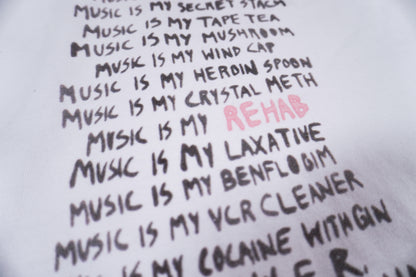 MUSIC IS MY SECRET STACH
MUSIC IS MY TAPE TEA
MUSIC IS MY MUSHROOM
MUSIC IS MY WIND CAP
MUSIC IS MY HEROIN SPOON
MUSIC IS MY CRYSTAL METH
MUSIC IS MY REHAB
MUSIC IS MY LAXATIVE
MUSIC IS MY BENFLOGIM
MUSIC IS MY VCR CLEANER
MUSIC IS MY COCAINE WITH GIN